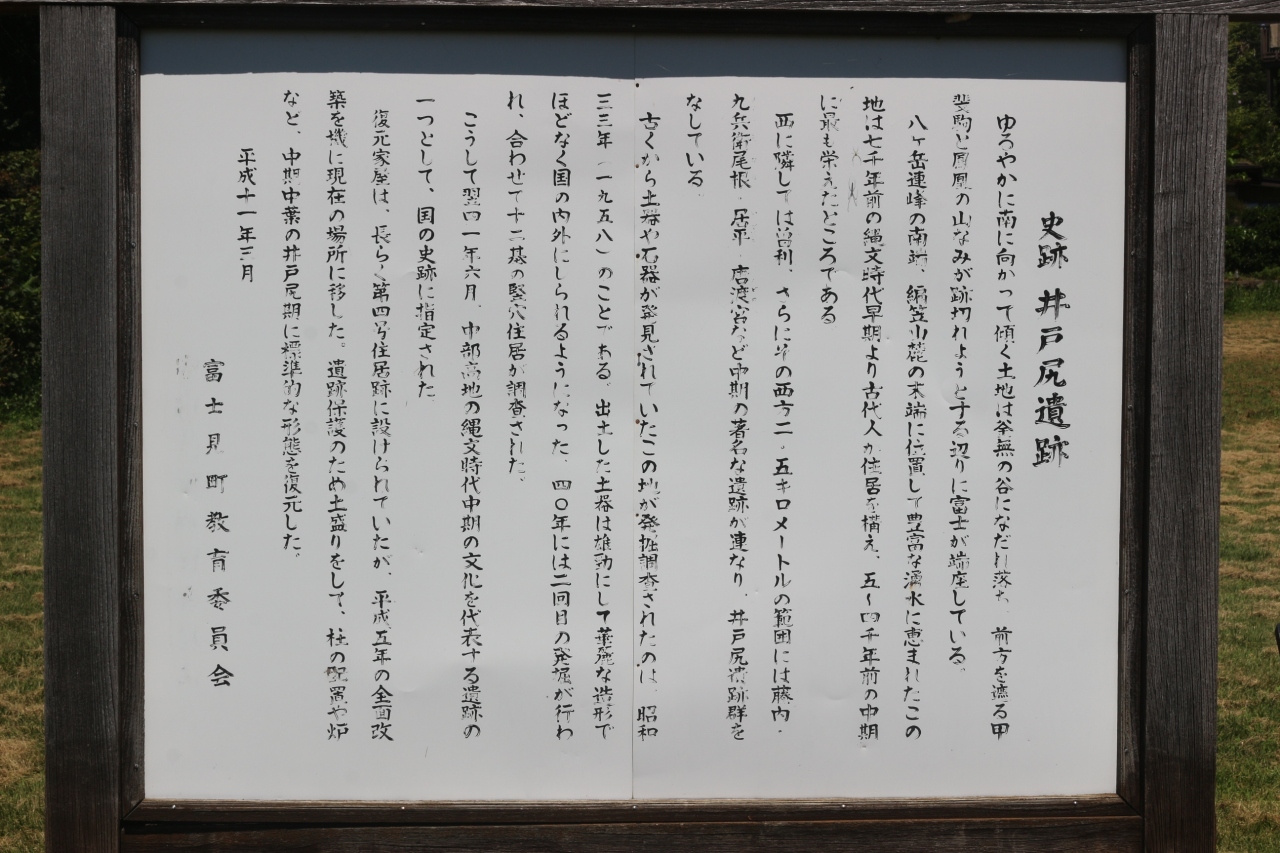 史跡 井戸尻遺跡
ゆろやかに南に向かって傾く土地は釜無の谷になだれ落ち、前方を遮る甲
斐駒と鳳凰の山なみが跡切れようとする辺りに富士が端座している。
八ヶ岳連峰の南端、編笠山麓の末端に位置して豊富な湧水に恵まれたこの
地は七千年前の縄文時代早期より古代人が住居を構え、五〜四千年前の中期
に最も栄えたところである
西に隣しては曽利、さらにその西方二・五キロメートルの範囲には藤内・
九兵衛尾根・居平・唐渡宮など中期の著名な遺跡が連なり、井戸尻遺跡群を
なしている。
古くから土器や石器が発見されていたこの地が発掘調査されたのは、昭和
三三年(一九五八)のことである。出土した土器は雄勁にして華麗な造形で
ほどなく国の内外にしられるようになった。四〇年には二回目の発掘が行わ
れ、合わせて十二基の竪穴住居が調査された。
こうして翌四一年六月、中部高地の縄文時代中期の文化を代表する遺跡の
一つとして、国の史跡に指定された
復元家屋は、長らく第四号住居跡に設けられていたが、平成五年の全面改
築を機に現在の場所に移した。遺跡保護のため土盛りをして、柱の配置や炉
など、中期中葉の井戸尻期に標準的な形態を復元した。
平成十一年三月
富士見町教育委員会